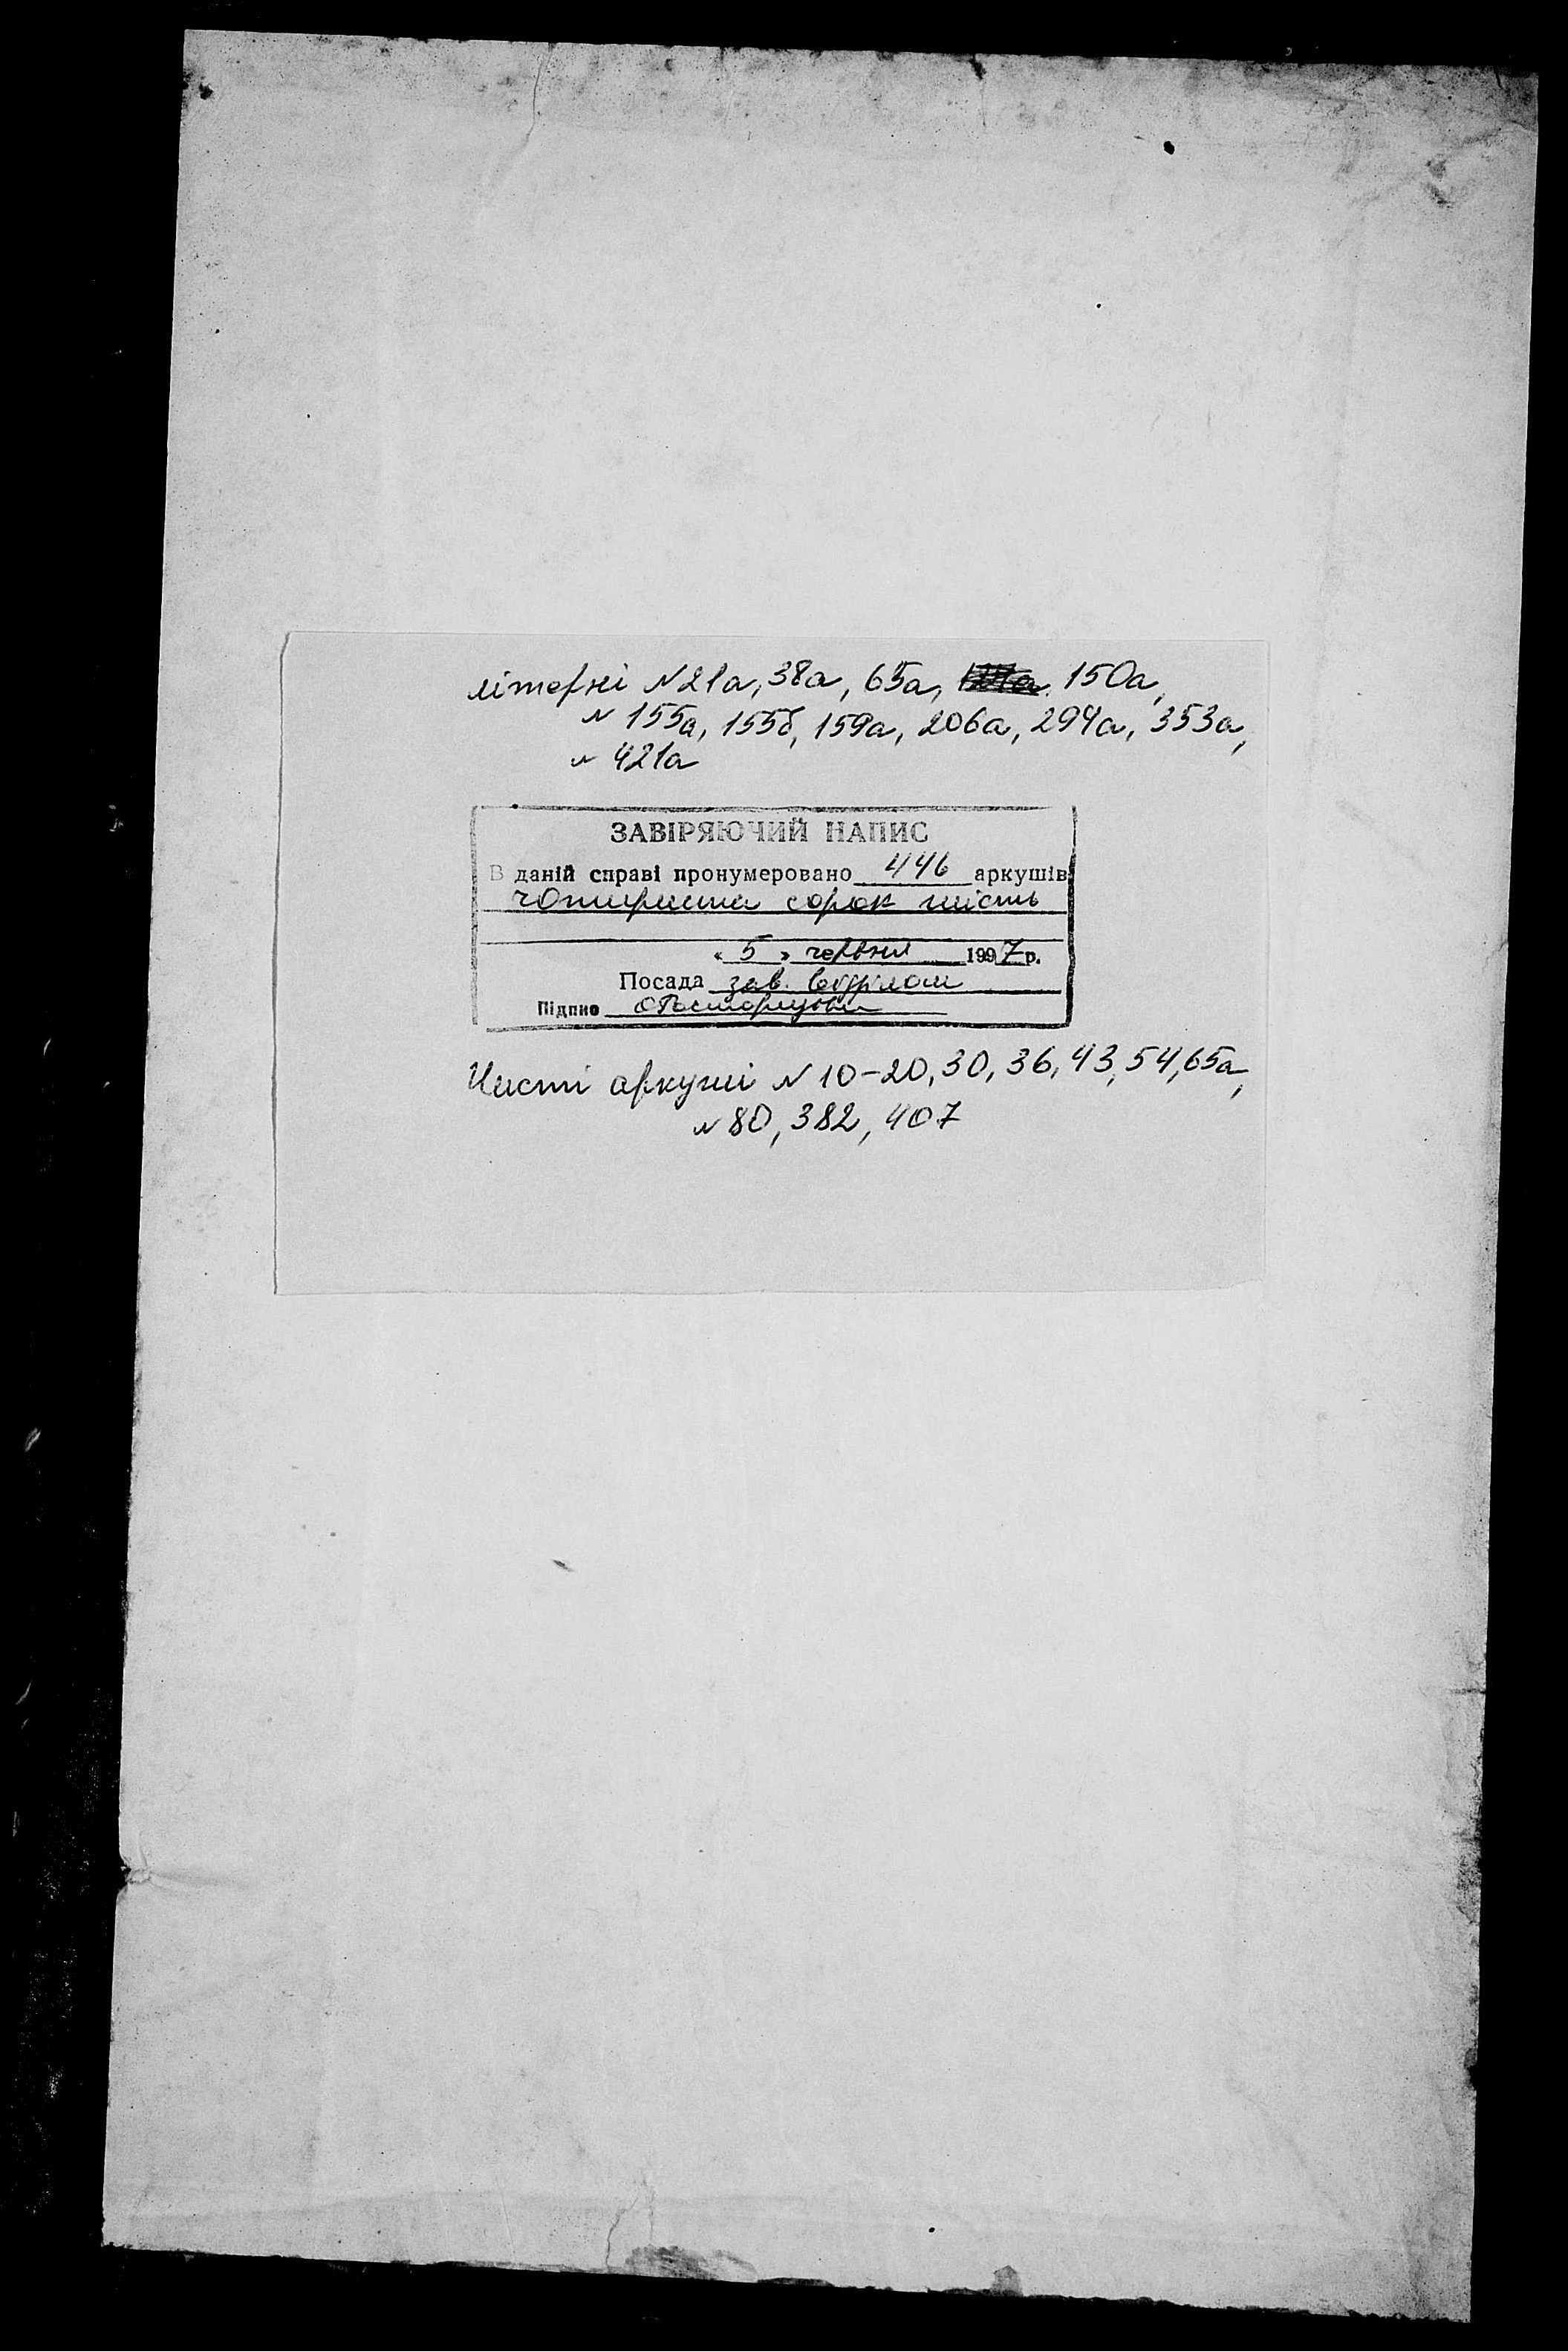 літерні №21а, 38а, 65а, 150а,
№ 155а, 155б, 159а, 206а, 294а, 353а,
№ 421а
ЗАВІРЯЮЧИЙ НАПИС
В даній справі пронумеровано 446 аркушів
чотириста сорок шість
« 5 » червня 1997 р.
Посада зав. відділом
Підпис
Чисті аркуші № 10-20, 30, 36, 43, 54, 65а,
№ 80, 382, 407